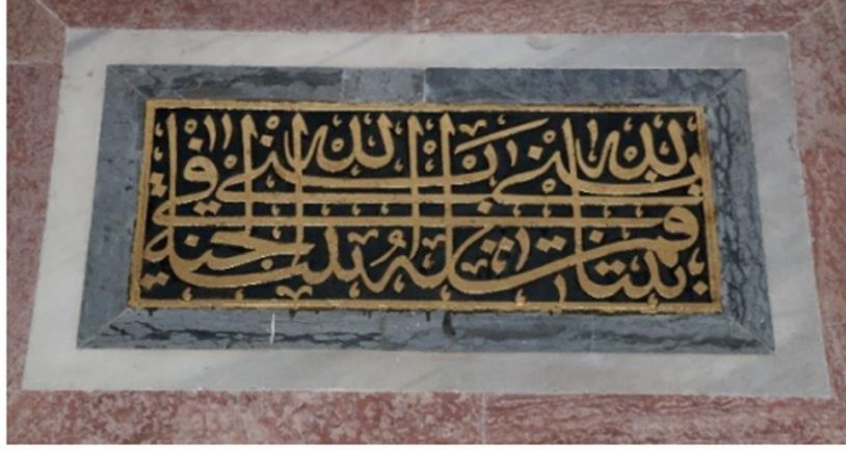 من بنى لله بيتا بنى الله له بيتا في الجنة